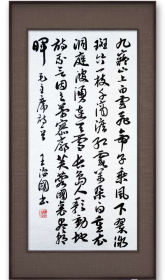 九嶷山上白雲飛帝子乘風下翠微
斑竹一枝千滴淚紅霞萬朵百重衣
洞庭波涌連天雪長島人歌動地
詩我欲因之夢寥廓芙蓉國裏盡朝
暉 毛主席詩